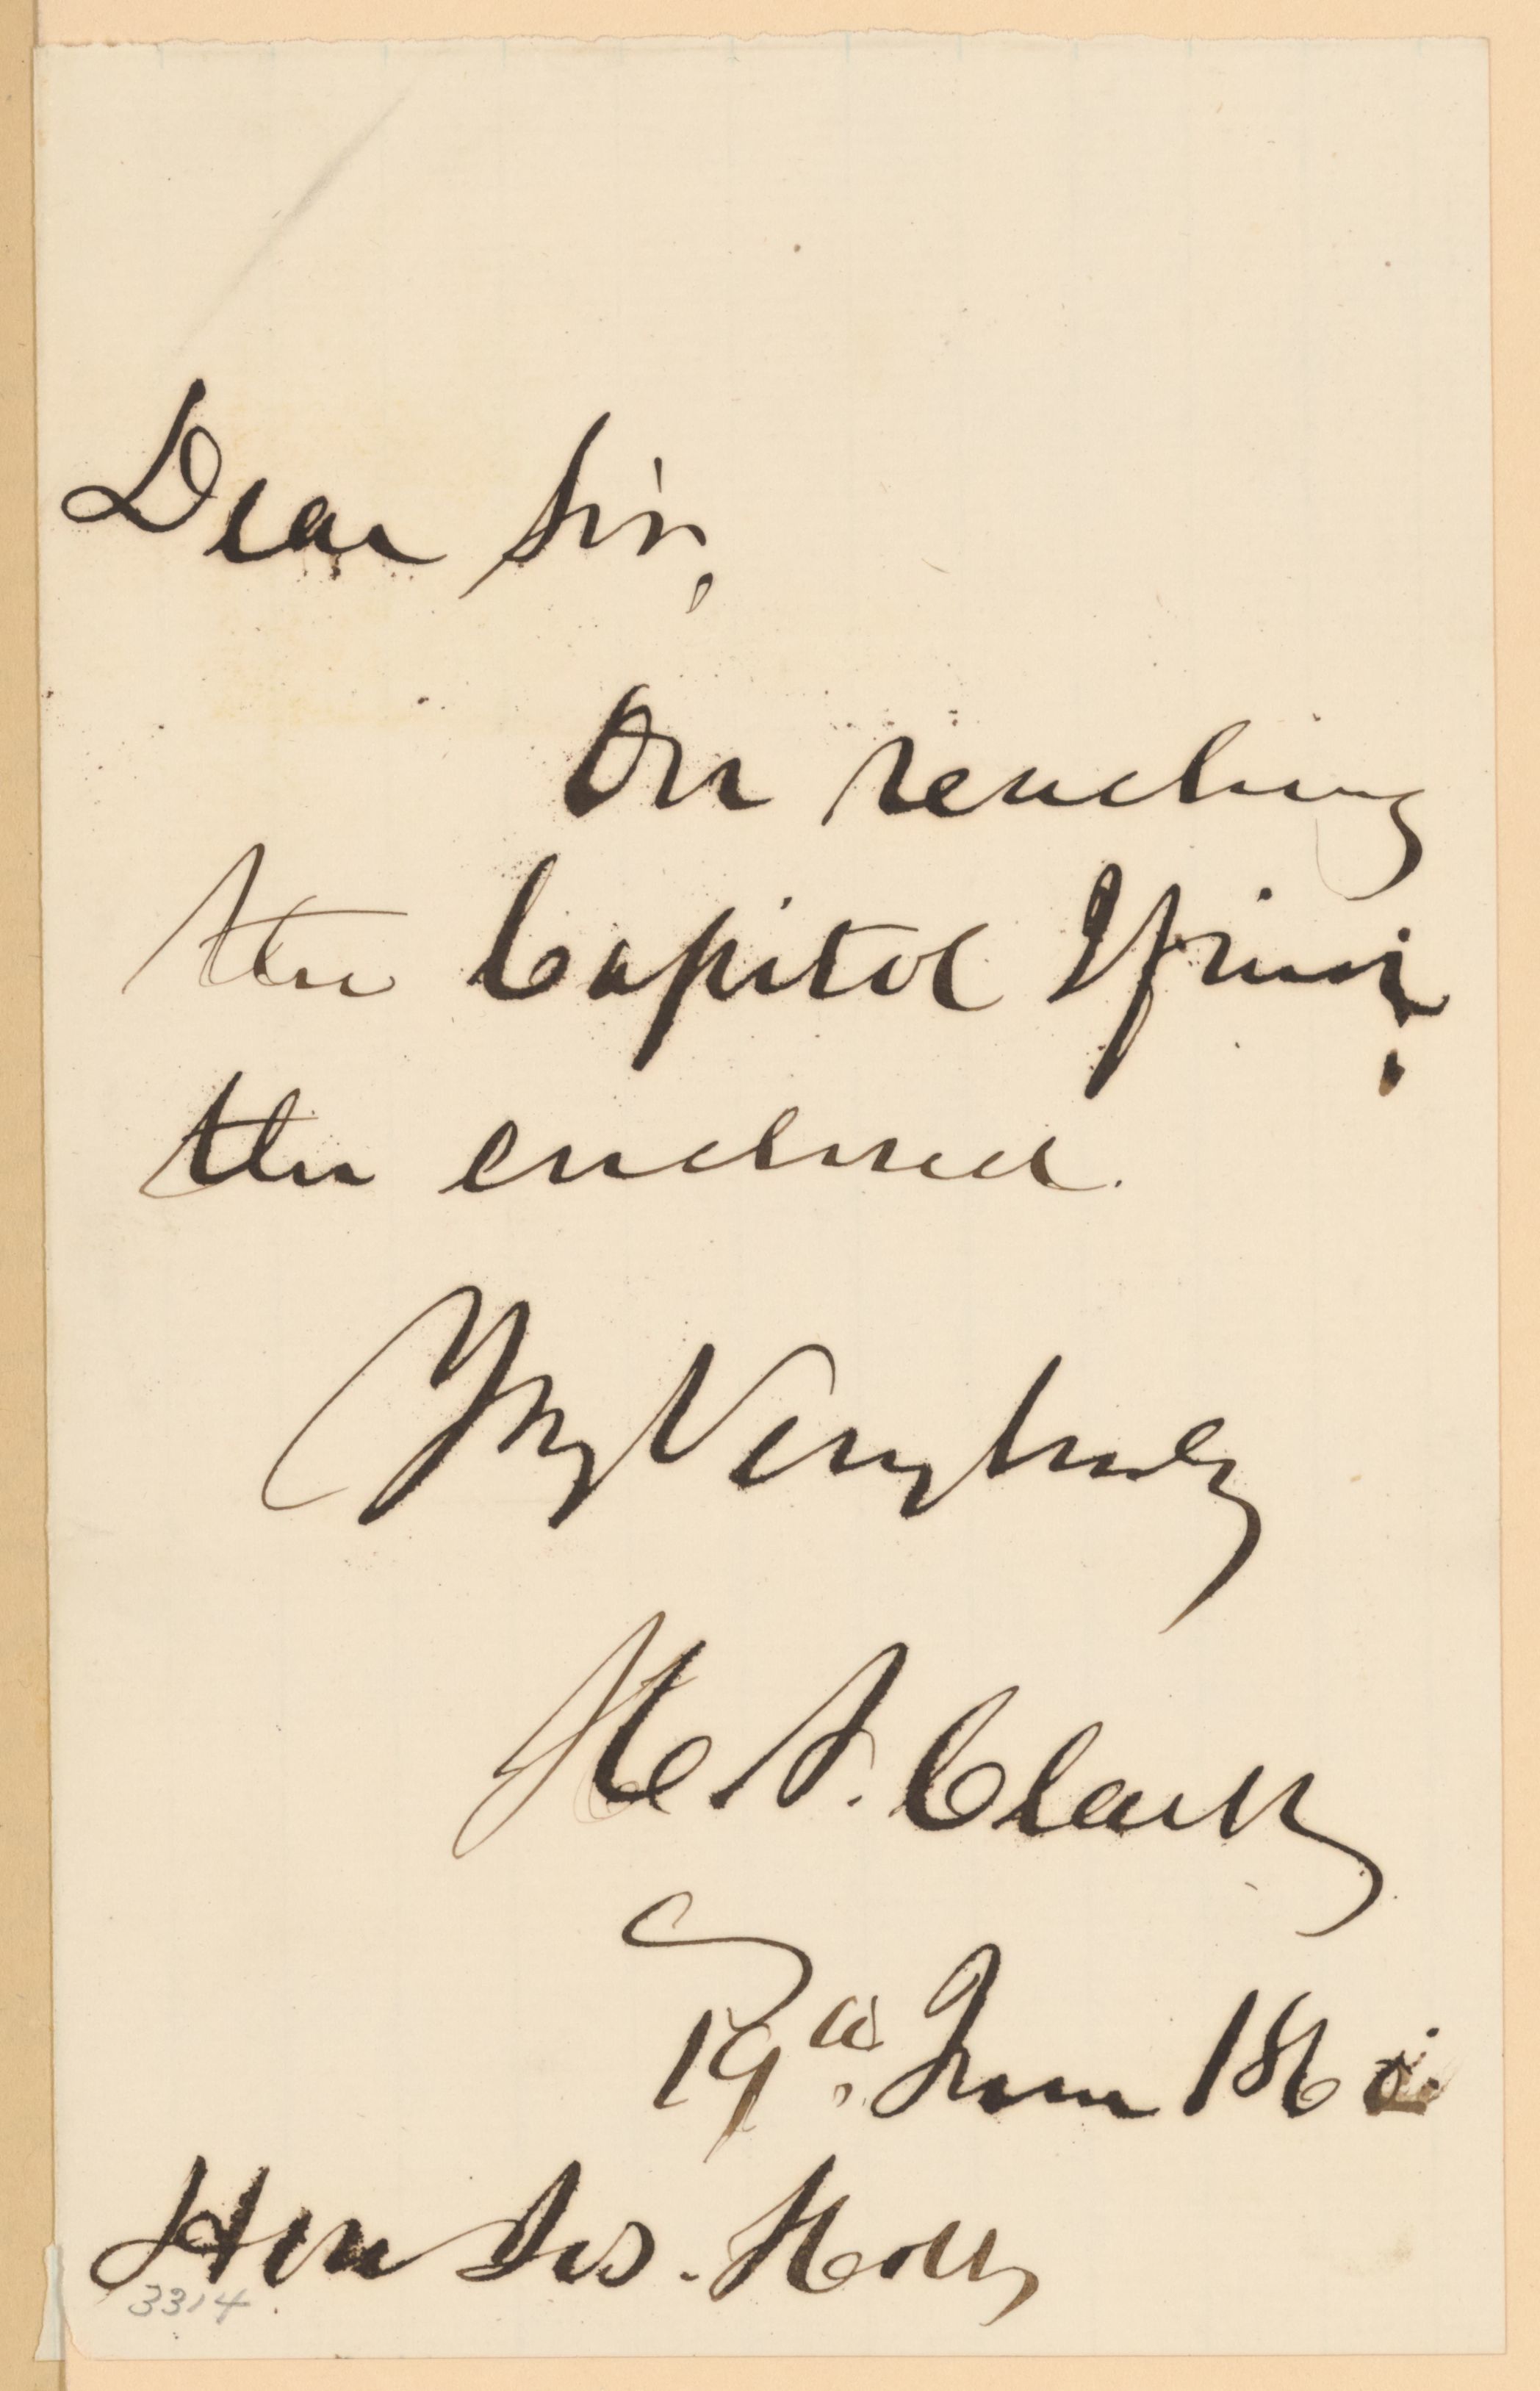 Dear Sir,
On reaching
the Capitol I find
the enclosed.
My Very truly
H. A. Clark
19th. June 186
Hon Jos. Holt
3314